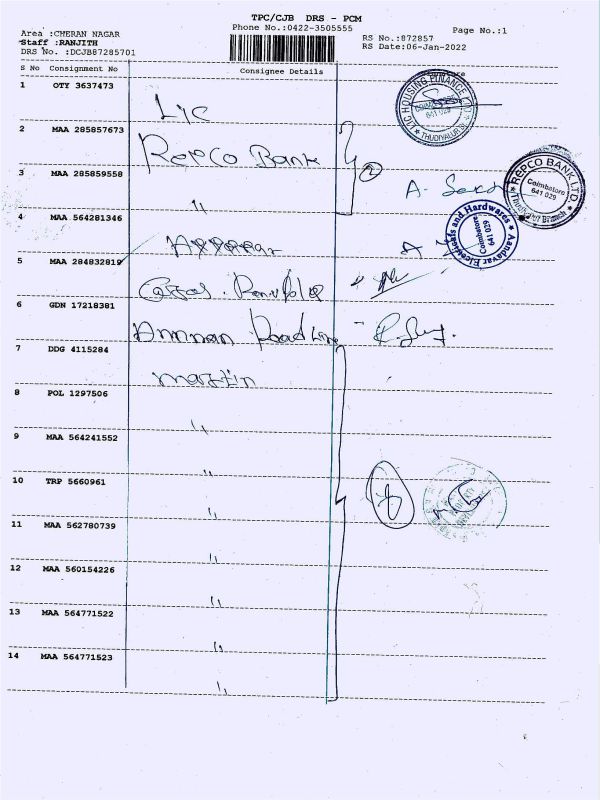 TPC/CJB DRS - PCM
Phone No.:0422-3505555
Page No.:1
Area :CHERAN NAGAR
Staff :RANJITH
DRS No. :DCJB87285701
RS No.:872857
RS Date:06-Jan-2022
S No Consignment No Consignee Details
1 OTY 3637473
LIC
LIC HOUSING FINANCE LTD
641 029
THUDIYALUR
2 MAA 285857673
Repco Bank
2
3 MAA 285859558
"
A.
REPCO BANK LTD.
Coimbatore
641 029
Thudiyalur Branch
4 MAA 564281346
Aandavar Electricals and Hardwares
Coimbatore
641 029
5 MAA 284832819
6 GDN 17218381
Amman
7 DDG 4115284
Martin
8 POL 1297506
"
9 MAA 564241552
"
10 TRP 5660961
"
8
11 MAA 562780739
"
12 MAA 560154226
"
13 MAA 564771522
"
14 MAA 564771523
"